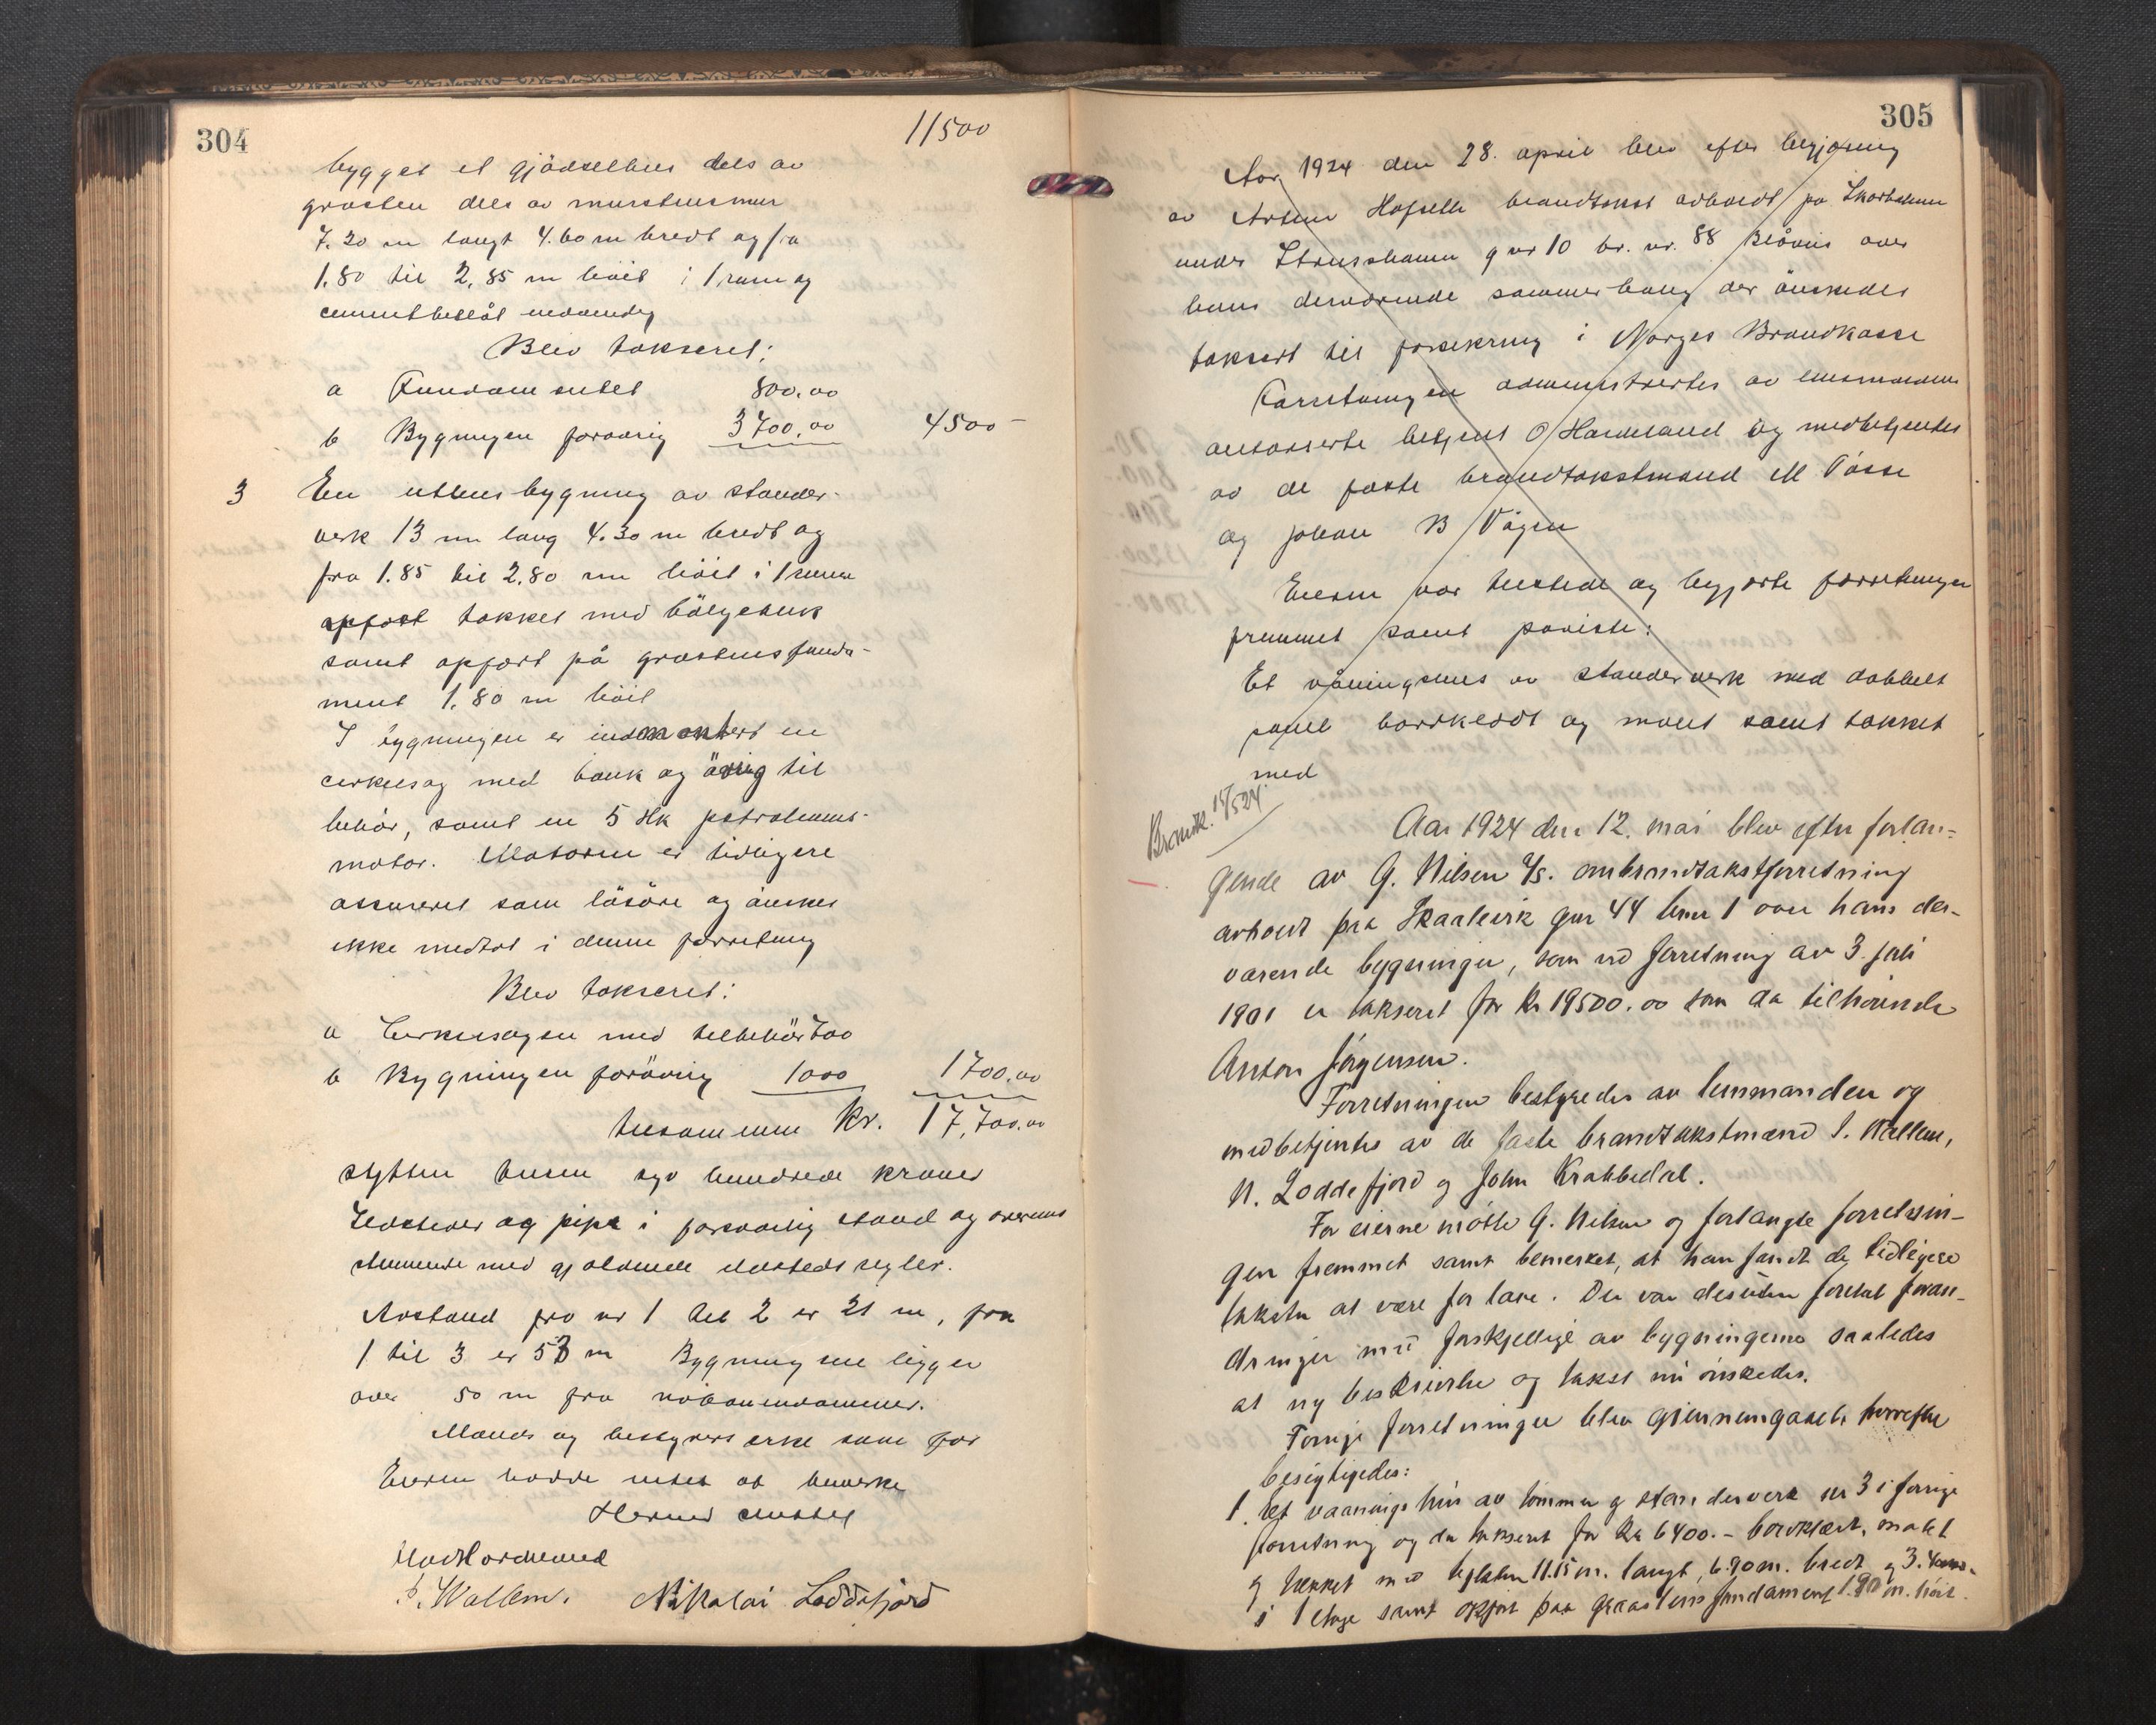 304
11500
bygget et gjödselhus dels av
grasten dels av murstensmur
7.20 m langt 4.60 m bredt og fra
1.80 til 2,85 m höit i 1 rum og
cementbeslåt indvendig
Blev takseret:
a Fundamentet 800.00
b Bygningen forövrig 3700.00 4500-
3 En uthusbygning av stander-
verk 13 m lang 4.30 m bredt og
fra 1.85 til 2.80 m höit i 1 rum
opfört takket med bölgeblik
samt opfört på grastensfunda-
ment 1.80 m höit
I bygningen er indmontert en
cirkelsag med bænk og övrig til
behör, samt en 5 Hk petroleums-
motor. Motoren er tidligere
assureret som lösöre og önskes
ikke medtat i denne forretning
Blev takseret:
a Cirkelsagen med tilbehör 700
b Bygningen forövrig 1000 1700.00
tilsammen Kr. 17,700.00
sytten tusen syv hundrede kroner
Ildsteder og pipe i forsvarlig stand og overens
stemmende med gjældende ildstedsregler.
Avstand fra nr 1 til 2 er 21 m, fra
1 til 3 er 53 m Bygningene ligger
over 50 m fra naboeiendommer.
Mands og bestyrers erkl som för
Eieren hadde intet at bemerke
Hermed sluttet
Hordneland
S. Wallem. Nikolai Loddefjord
305
Aar 1924 den 28. april blev efter begjæring
av Hofseth brandtakst avholdt på
under Strusshamn g nr 10 br. nr. 88 over
hans derværende sommerbolig der önskedes
taksert til forsikring i Norges Brandkasse
Forretningen administrertes av lensmandens
autoriserte betjent O Hordneland og medbetjentes
av de faste brandtakstmænd M Tösse
og Johan B Vågen
Eieren var tilstede og begjærte forretningen
fremmet samt påviste:
Et våningshus av standerverk med dobbelt
panel bordklædt og malt samt takket
med
Brandk. 15/5 24.
Aar 1924 den 12. mai blev efter forlan-
gende av G. Nilsen A/S. ombrandtakstforretning
avholdt paa Skaalevik gnr 44 bnr 1 over hans der-
værende bygninger, som ved forretning av 3. juli
1901 er takseret for kr 19500.00 som da tilhörende
Anton Jörgensen.
Forretningen bestyredes av lensmanden og
medbetjentes av de faste brandtakstmænd S. Wallem,
N. Loddefjord og John Krabbedal.
For eierne mötte G. Nilsen og forlangte forretnin-
gen fremmet samt bemerket, at han fandt de tidligere
takster at være for lave. Der var desuten foretat foran-
dringer med forskjellige av bygningerne saaledes
at ny beskrivelse og takst nu önskedes.
Forrige forretninger blev gjennemgaaet, hvorefter
besigtigedes:
1. Et vaaningshus av tömmer og standerverk nr 3 i forrige
forretning og da takseret for kr 6400.- bordklædt, malet
og tækket med teglsten 11.15 m. langt, 6.70 m. bredt og 3.
i 1 etage samt opfört paa graastensfundament 1.90 m. höit.